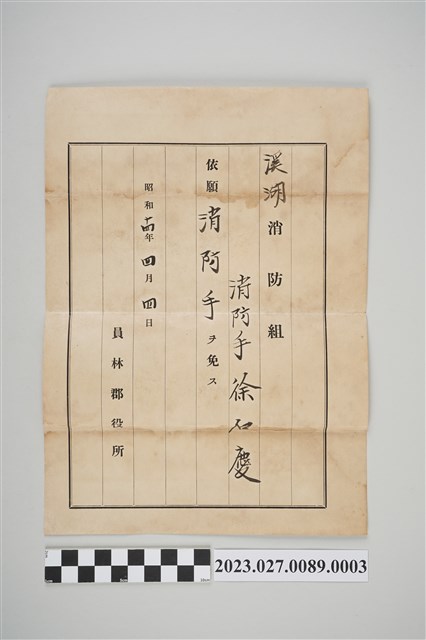 溪湖消防組
消防手 徐石慶
依願消防手ヲ免ス
昭和十四年四月四日
員林郡役所
2023.027.0089.0003